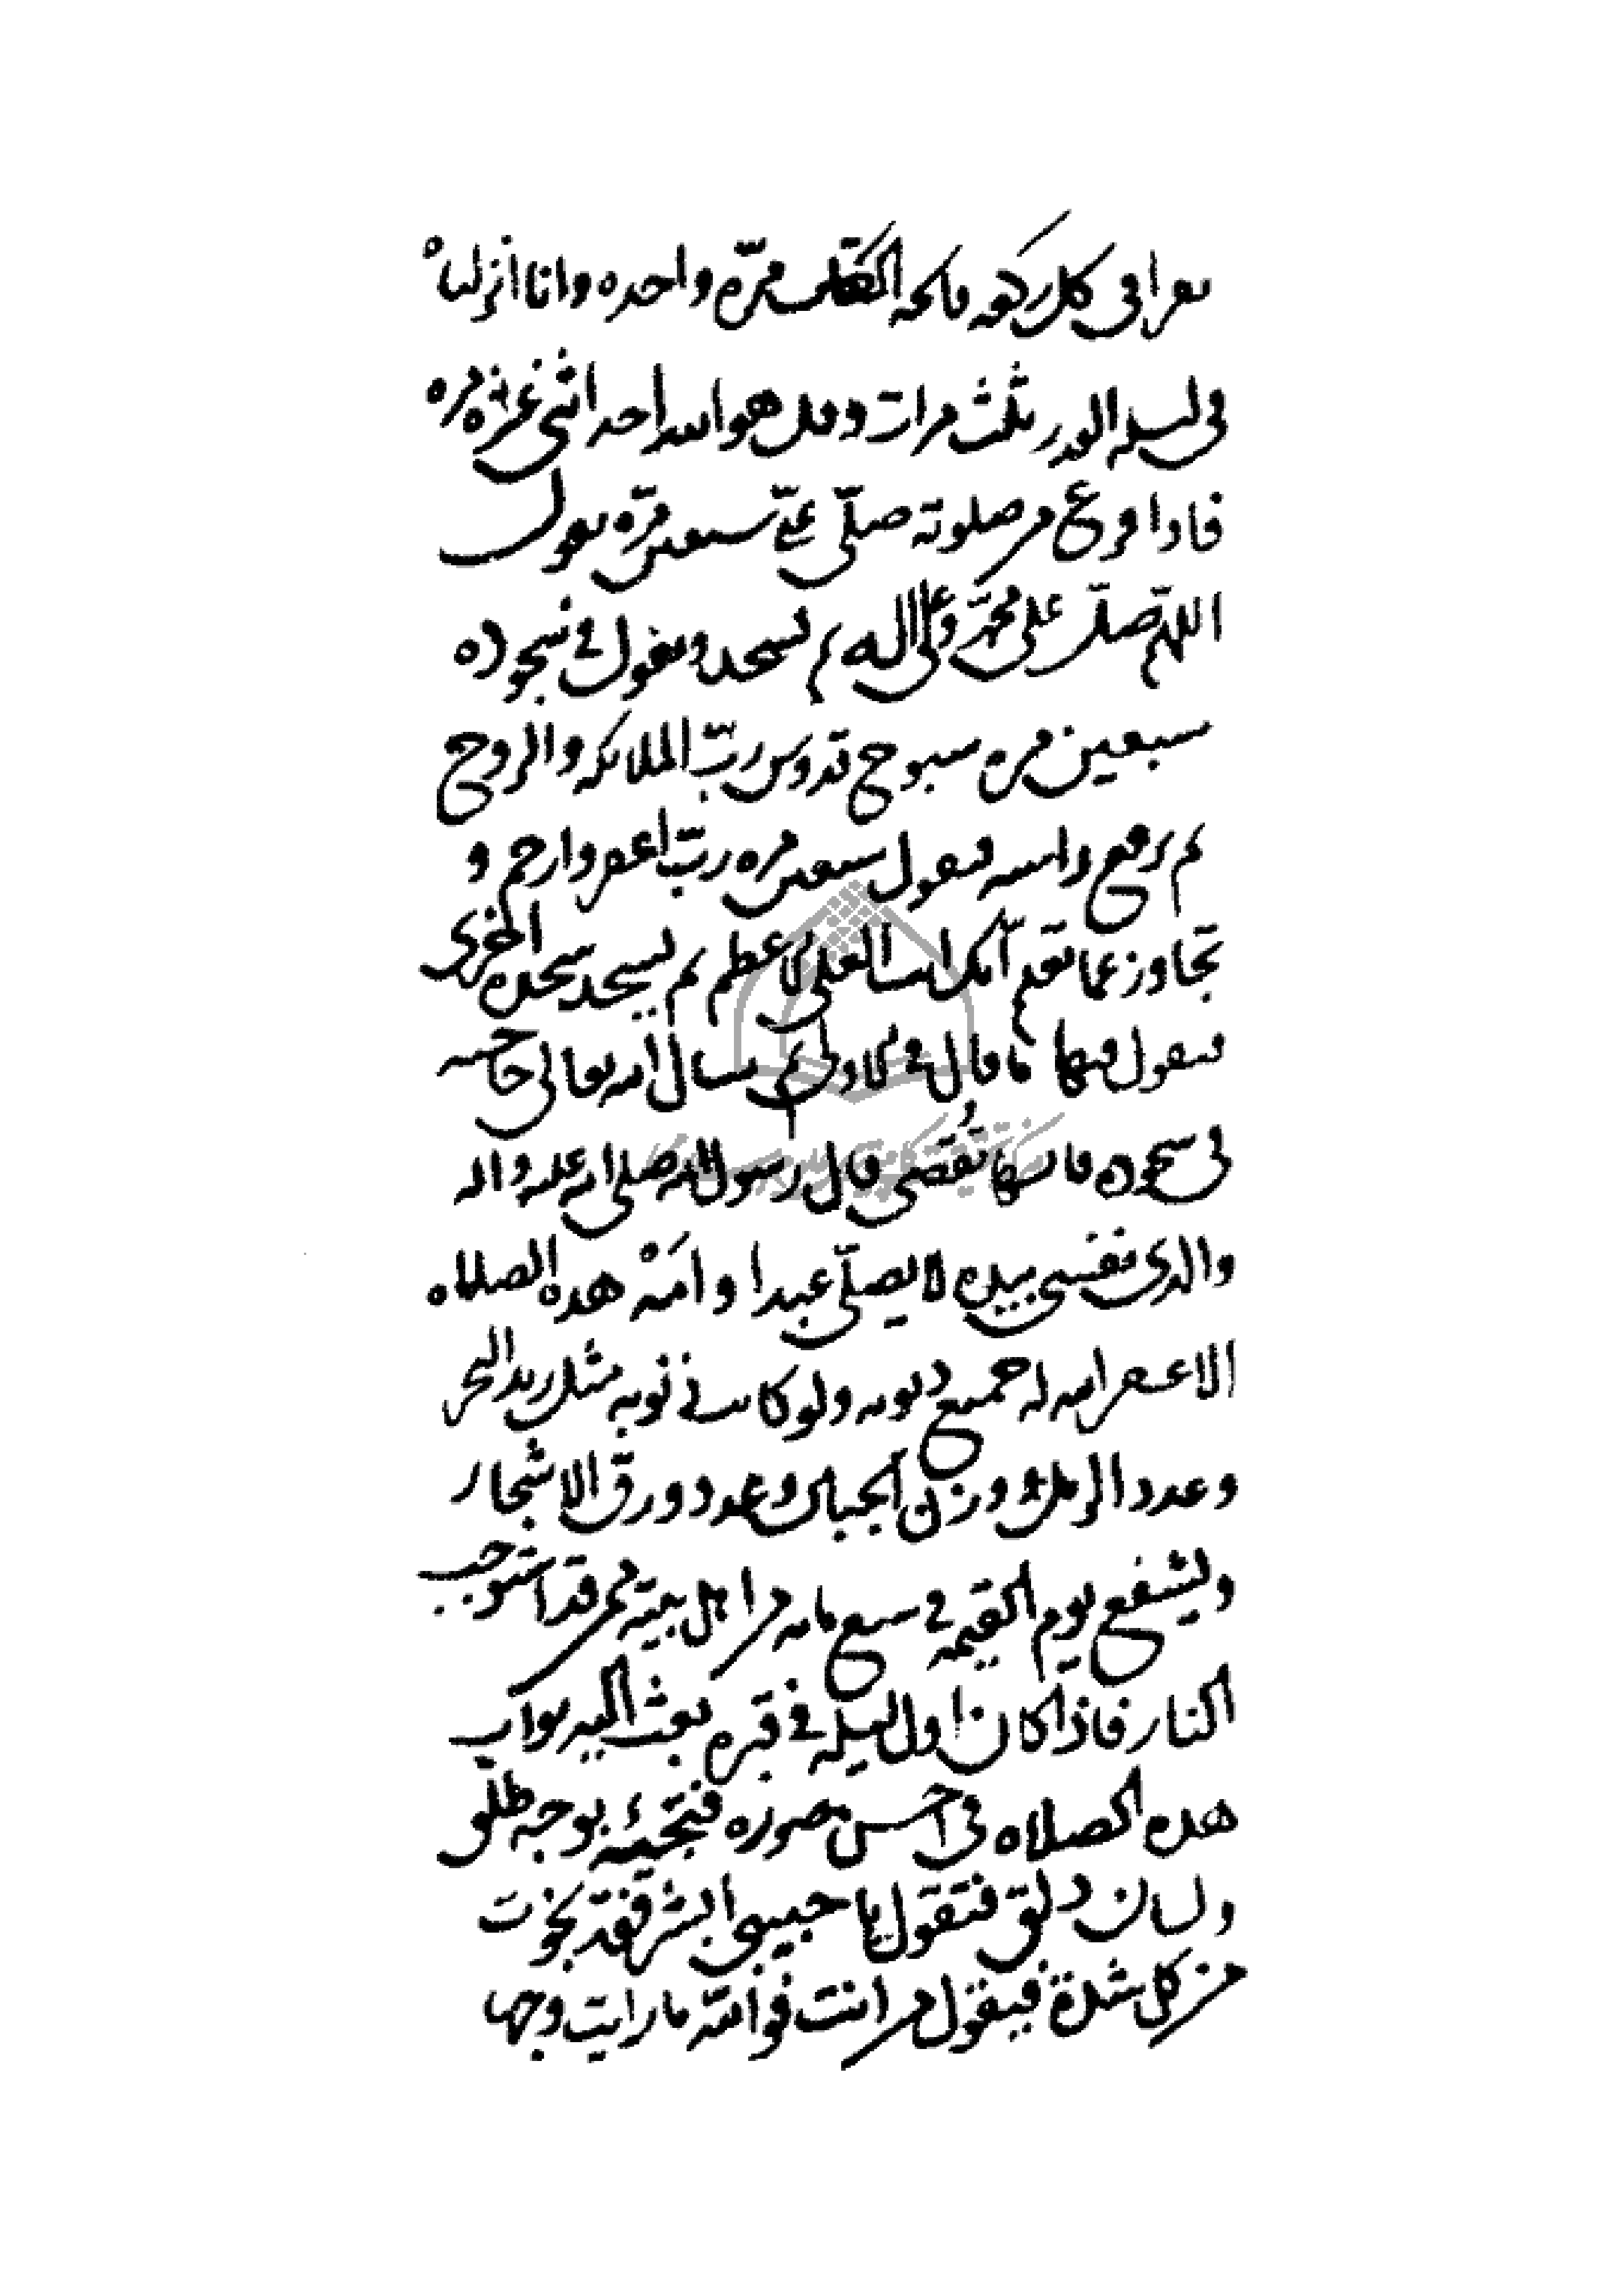 يقرا في كل ركعه فاتحه الكتاب مرّه واحده وانا انزلناه
في ليله القدر ثلث مرات وقل هو الله احد اثنى عشره مره
فاذا فرغ من صلوته صلّى عليّ سبعين مرّه يقول
اللهمّ صلّ على محمّد وعلى اله ثم يسجد ويقول في سجوده
سبعين مره سبوح قدوس ربّ الملائكه والروح
ثم يرفع راسه فيقول سبعين مره ربّ اغفر وارحم و
تجاوز عما تعلم انّك انت العلي الاعظم ثم يسجد سجده اخرى
فيقول فيها ما قال في الاولى ثم يسال الله تعالى حاجته
في سجوده فانها تُقضى قال رسول الله صلى الله عليه واله
والذي نفسي بيده لا يصلّي عبدا وامَة هذه الصلاه
الا غفر الله له جميع ذنوبه ولو كانت ذنوبه مثل زبد البحر
وعدد الرمل ووزن الجبال وعدد ورق الاشجار
ويشفع يوم القيمه في سبع مايه من اهل بيته ممن قد استوجب
النار فاذا كان اول ليله في قبره بعث اليه ثواب
هذه الصلاه في احسن صوره فتجيئه بوجه طلق
ولسان دلق فتقول يا حبيبي ابشر فقد نجوت
من كل شدة فيقول من انت فوالله ما رايت وجها